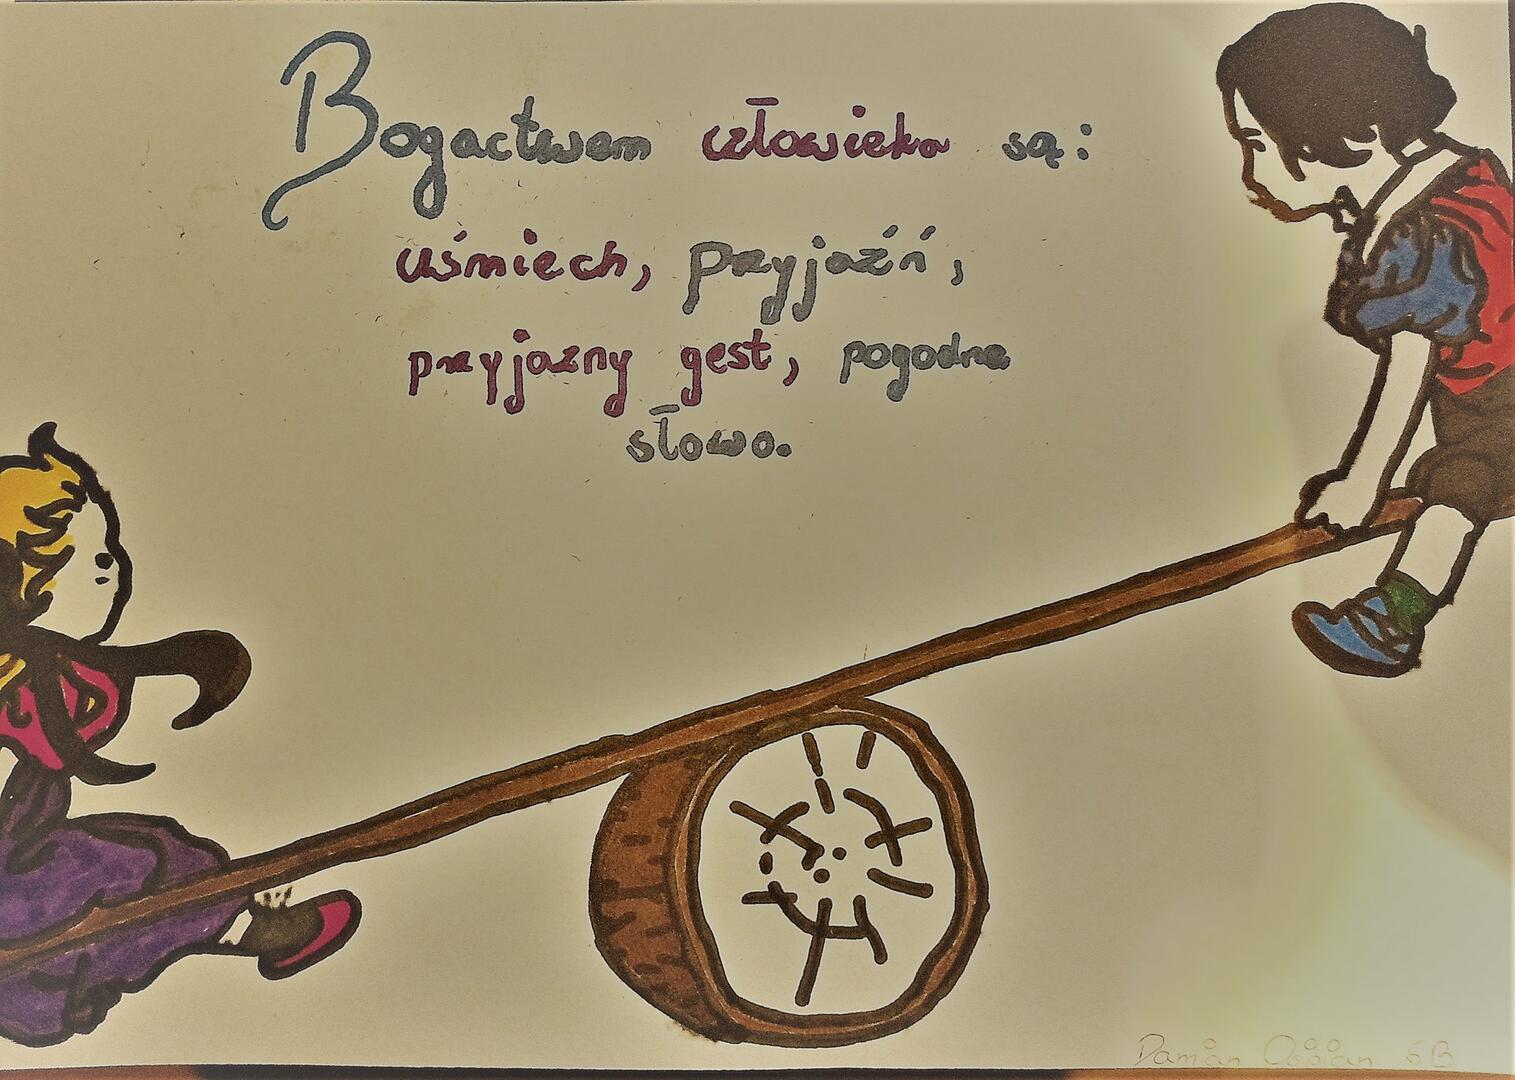 Bogactwem człowieka są:
uśmiech, przyjaźń,
przyjazny gest, pogodne
słowo.
Damian Osipian 6B